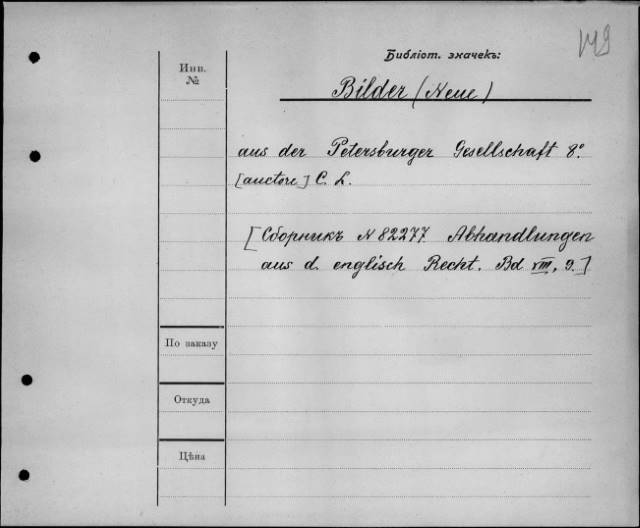 Библіот. значекъ:
Инв. №
Bilder (Neue)
aus der Petersburger Gesellschaft 8°
[auctore] C. L.
[Сборникъ N 82277. Abhandlungen
aus d. englisch Recht. Bd VIII, 9.]
По заказу
Откуда
Цѣна